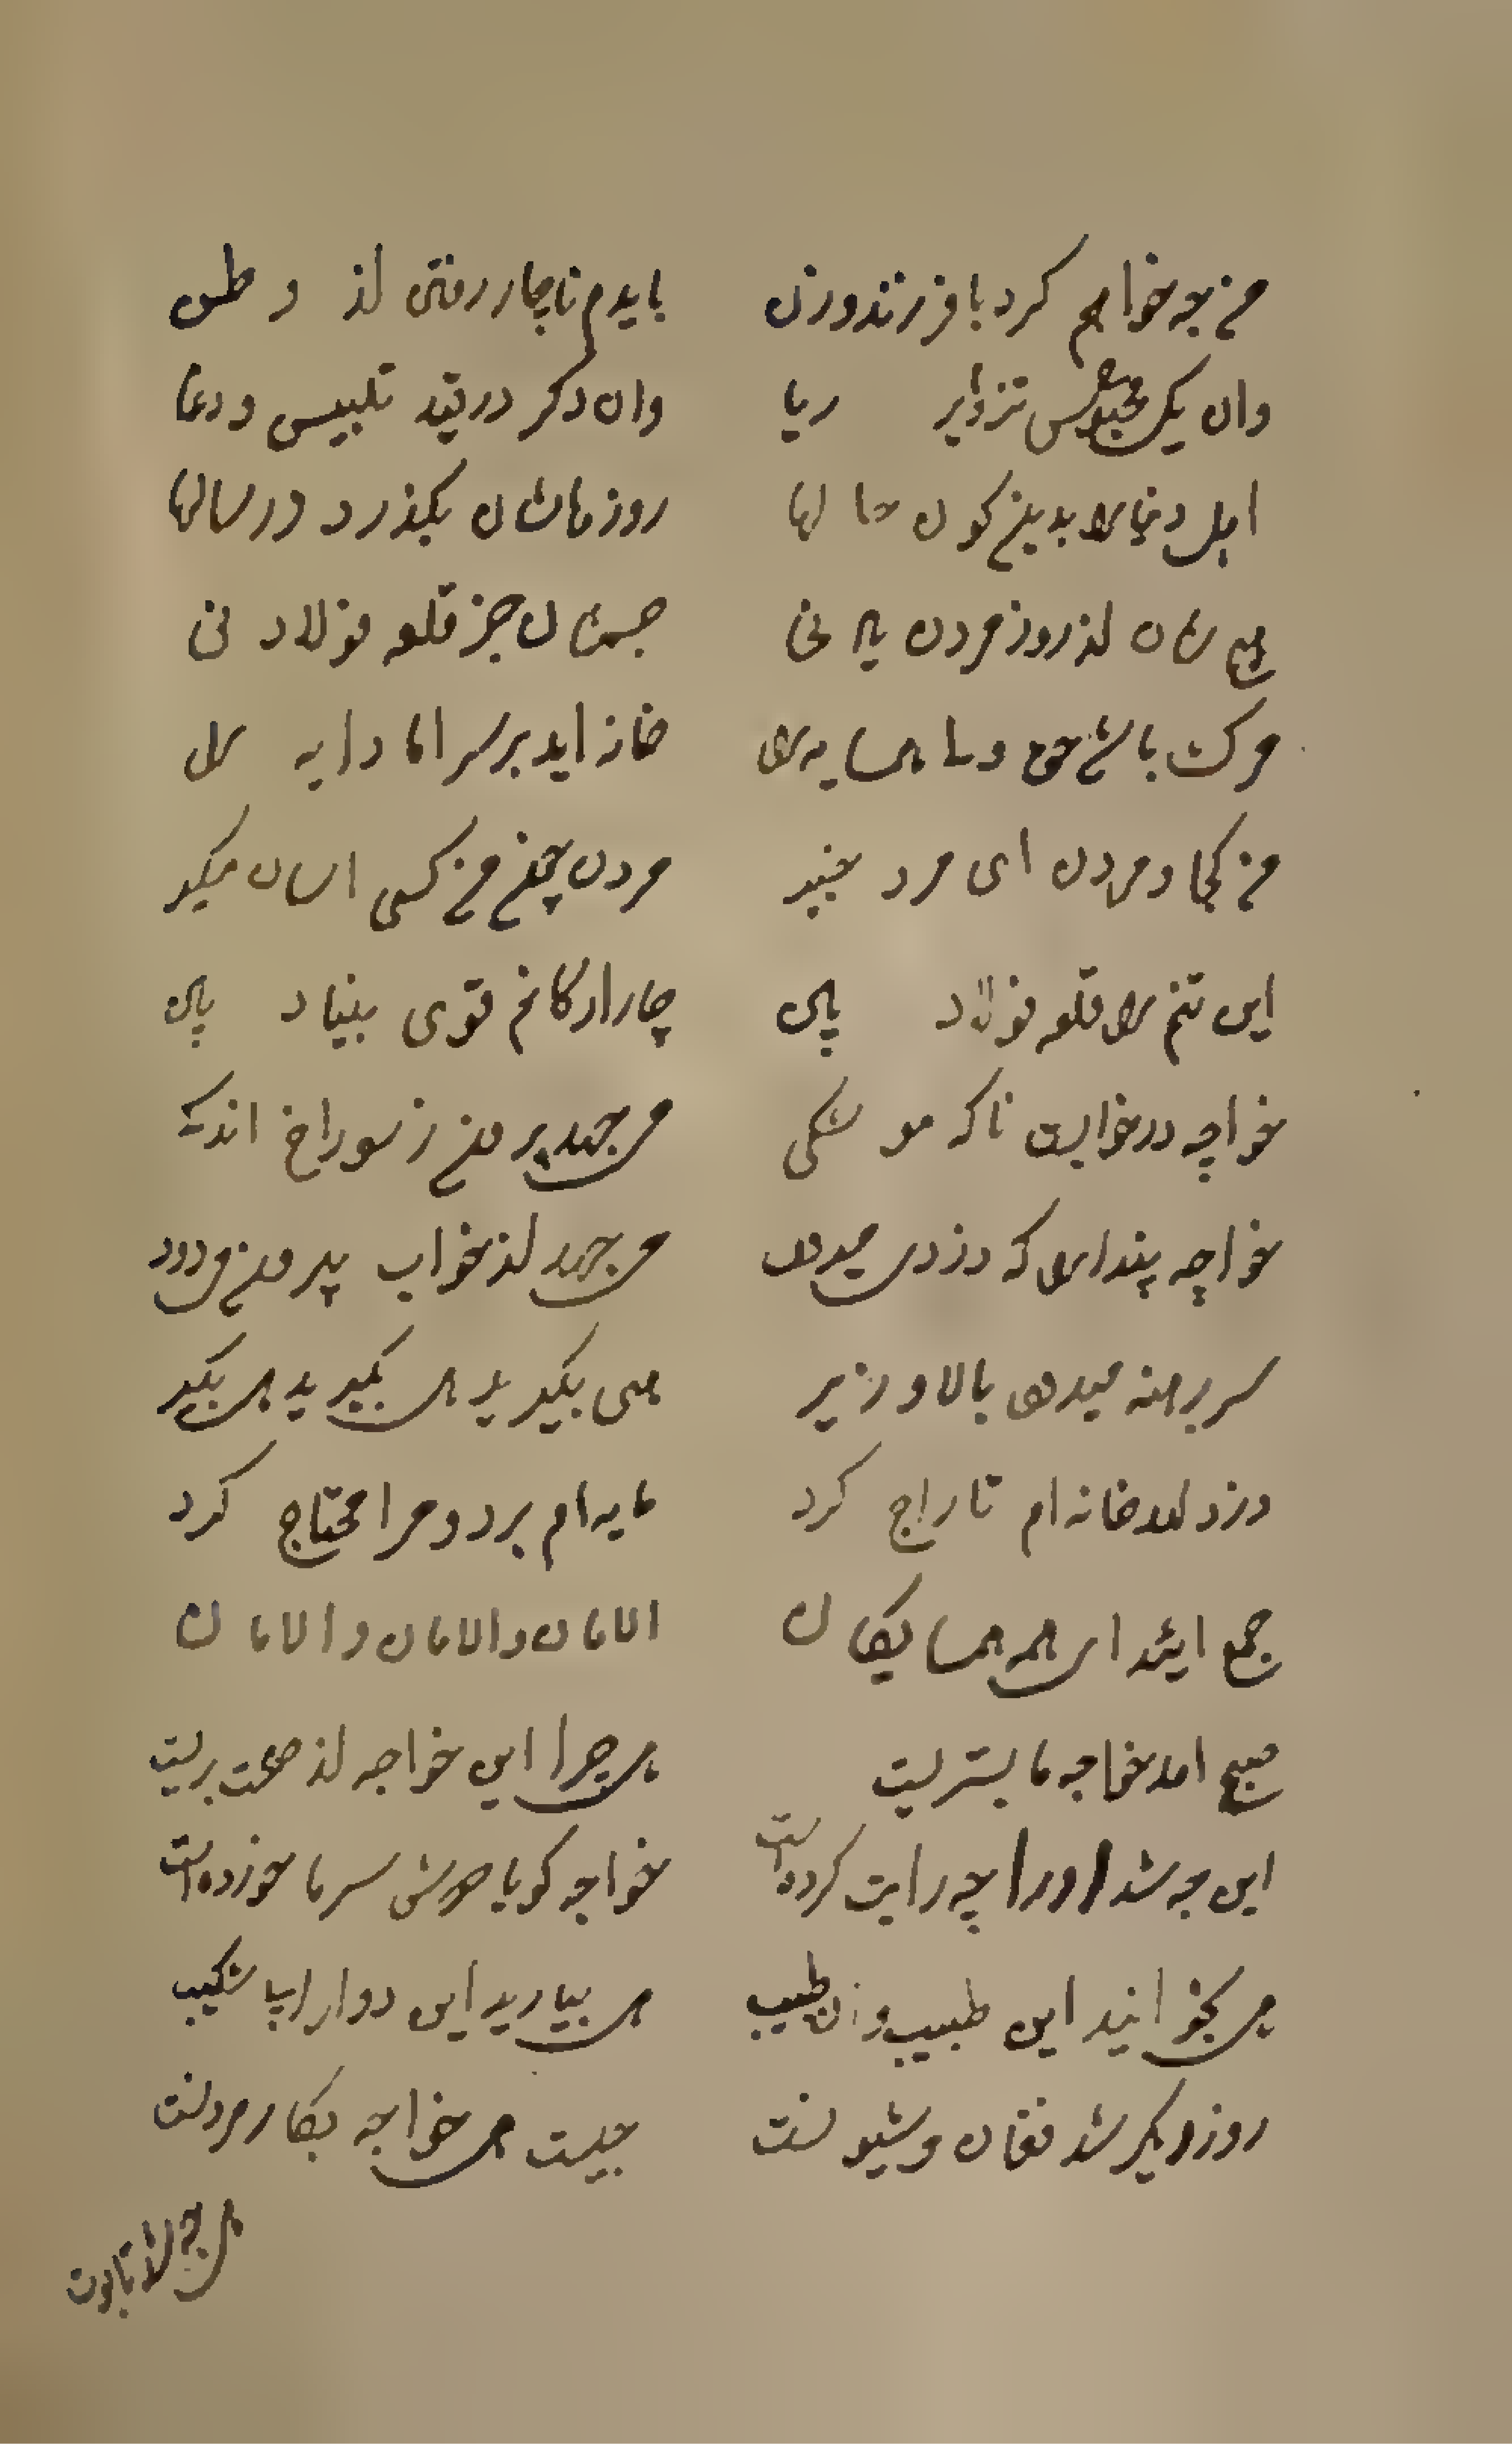 من چه خواهم کرد با فرزند و زن بایدم ناچار رفتن از و طن
وان یک محبوس تزویر ریا وان دکر در قید تلبیس و دغا
اهل دنیا را بدینکون حالها روزهاشان بکذرد در سالها
هیچشان از روز مردن یاد نی جسمشان جز قلعه فولاد نی
مرک باشد حق و لیا همسایه را خانه اید بر سر اما دایه را
من کجا و مردن ای مرد خبیر مردن چون من کسی اسان مکیر
این تنم را قلعه فولاد بین چار ارکانم قوی بنیاد بین
خواجه در خوابست ناکه موشکی می جهد بیرون ز سوراخ اندکی
خواجه پندارد که دزدی میدود می جهد از خواب بیرون می دود
سر برهنه میدود بالا و زیر هی بکیرید هی بکیرید هی بکیر
دزد امد خانه ام تاراج کرد مایه ام برد و مرا محتاج کرد
جمع ایید ای همه همسایکان الامان و الامان و الامان
صبح امد خواجه ما بستریست هی چرا این خواجه از صحت بریست
این چه شد او را چه رایت کرده است خواجه کویا دوش سرما خورده است
هی بخوانید این طبیب و ان طبیب هی بیارید این دوا را با شکیب
روز دیکر شد فغان و شیونست چیست هی خواجه بکار مردنست
هی چه لا تابوت